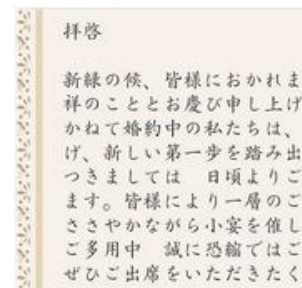 拝啓
新緑の候、皆様におかれま
祥のこととお慶び申し上げ
かねて婚約中の私たちは、
げ、新しい第一歩を踏み出
つきましては　日頃よりご
ます。皆様により一層のご
ささやかながら小宴を催し
ご多用中　誠に恐縮ではご
ぜひご出席をいただきたく